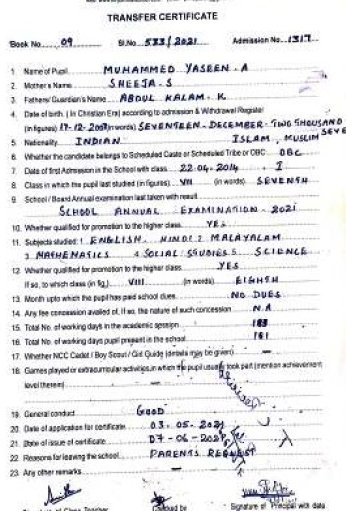 TRANSFER CERTIFICATE
Book No. 09 Sl.No 533/2021 Admission No. 1317
1 Name of Pupil MUHAMMED YASEEN.A
2 Mother's Name SHEEJA.S
3 Fathers/ Guardian's Name ABDUL KALAM.K
4 Date of birth. ( In Christian Era) according to admission & Withdrawal Register
(in figures) 17-12-2007 (in words) SEVENTEEN-DECEMBER-TWO THOUSAND SEVE
5 Nationality INDIAN ISLAM, MUSLIM
6 Whether the candidate belongs to Scheduled Caste or Scheduled Tribe or OBC OBC
7 Date of first Admission in the School with class 22-04-2014 I
8 Class in which the pupil last studied (in figures) VII (in words) SEVENTH
9 School / Board Annual examination last taken with result
SCHOOL ANNUAL EXAMINATION-2021
10. Whether qualified for promotion to the higher class. YES
11. Subjects studied 1 ENGLISH, HINDI 2 MALAYALAM
3 MATHEMATICS 4 SOCIAL STUDIES 5 SCIENCE
12 Whether qualified for promotion to the higher class. YES
If so, to which class (in fig.) VIII (in words) EIGHTH
13 Month upto which the pupil has paid school dues. NO DUES
14. Any fee concession availed of, If so, the nature of such concession N.A
15. Total No. of working days in the academic session
16 Total No. of working days pupil present in the school 161
17. Whether NCC Cadet / Boy Scout / Girl Guide (details may be given)
18. Games played or extracurricular activities in which the pupil usually took part (mention achievement
level therein)
19. General conduct GOOD
20. Date of application for certificate 03-05-2021
21. Date of issue of certificate 07-06-2021
22 Reasons for leaving the school PARENTS REQUEST
23. Any other remarks
Checked by Signature of Principal with date